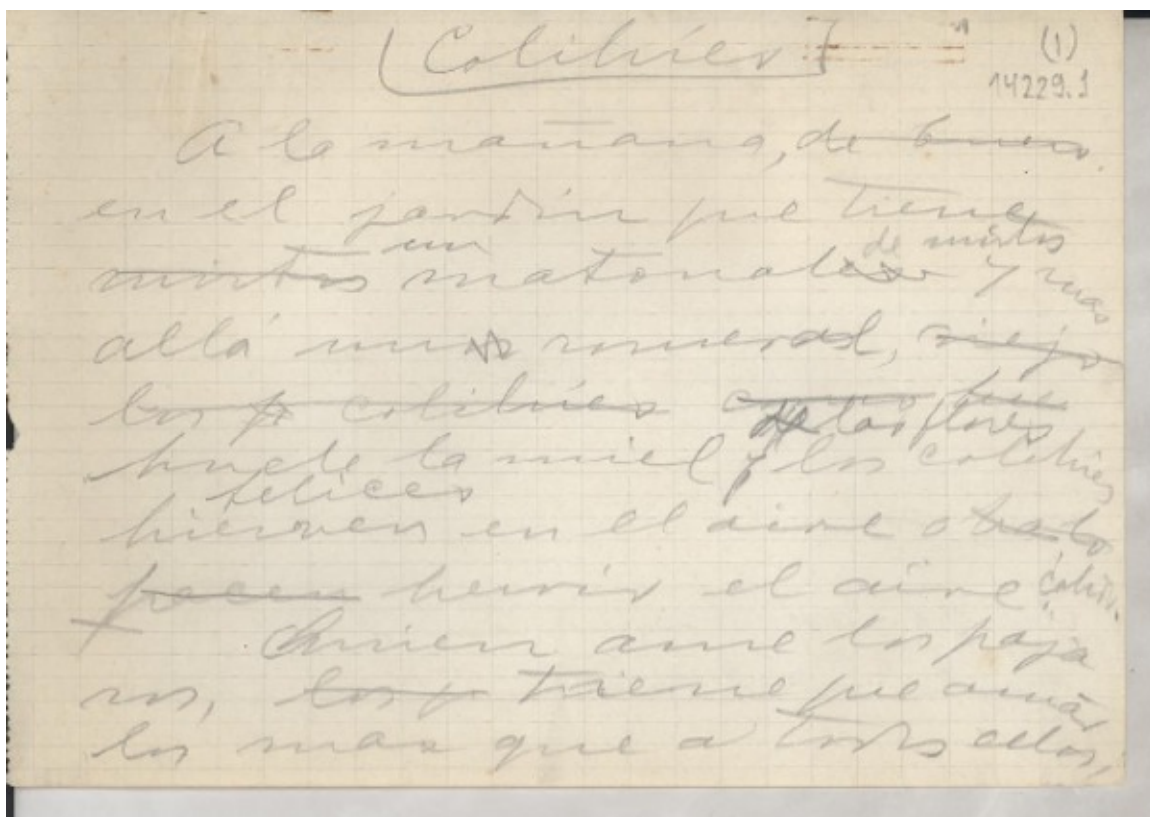 (Colibríes]
(1)
14229.1
A la mañana, de
en el jardín que tiene
un de mirtos
mirtos matorral y mas
allá un romeral,
los colibríes
de las flores
huele la miel y los colibríes
felices
hierven en el aire o
hervir el aire
Quien ame los pája
ros, los p tiene que amar
los mas que a todos ellos,